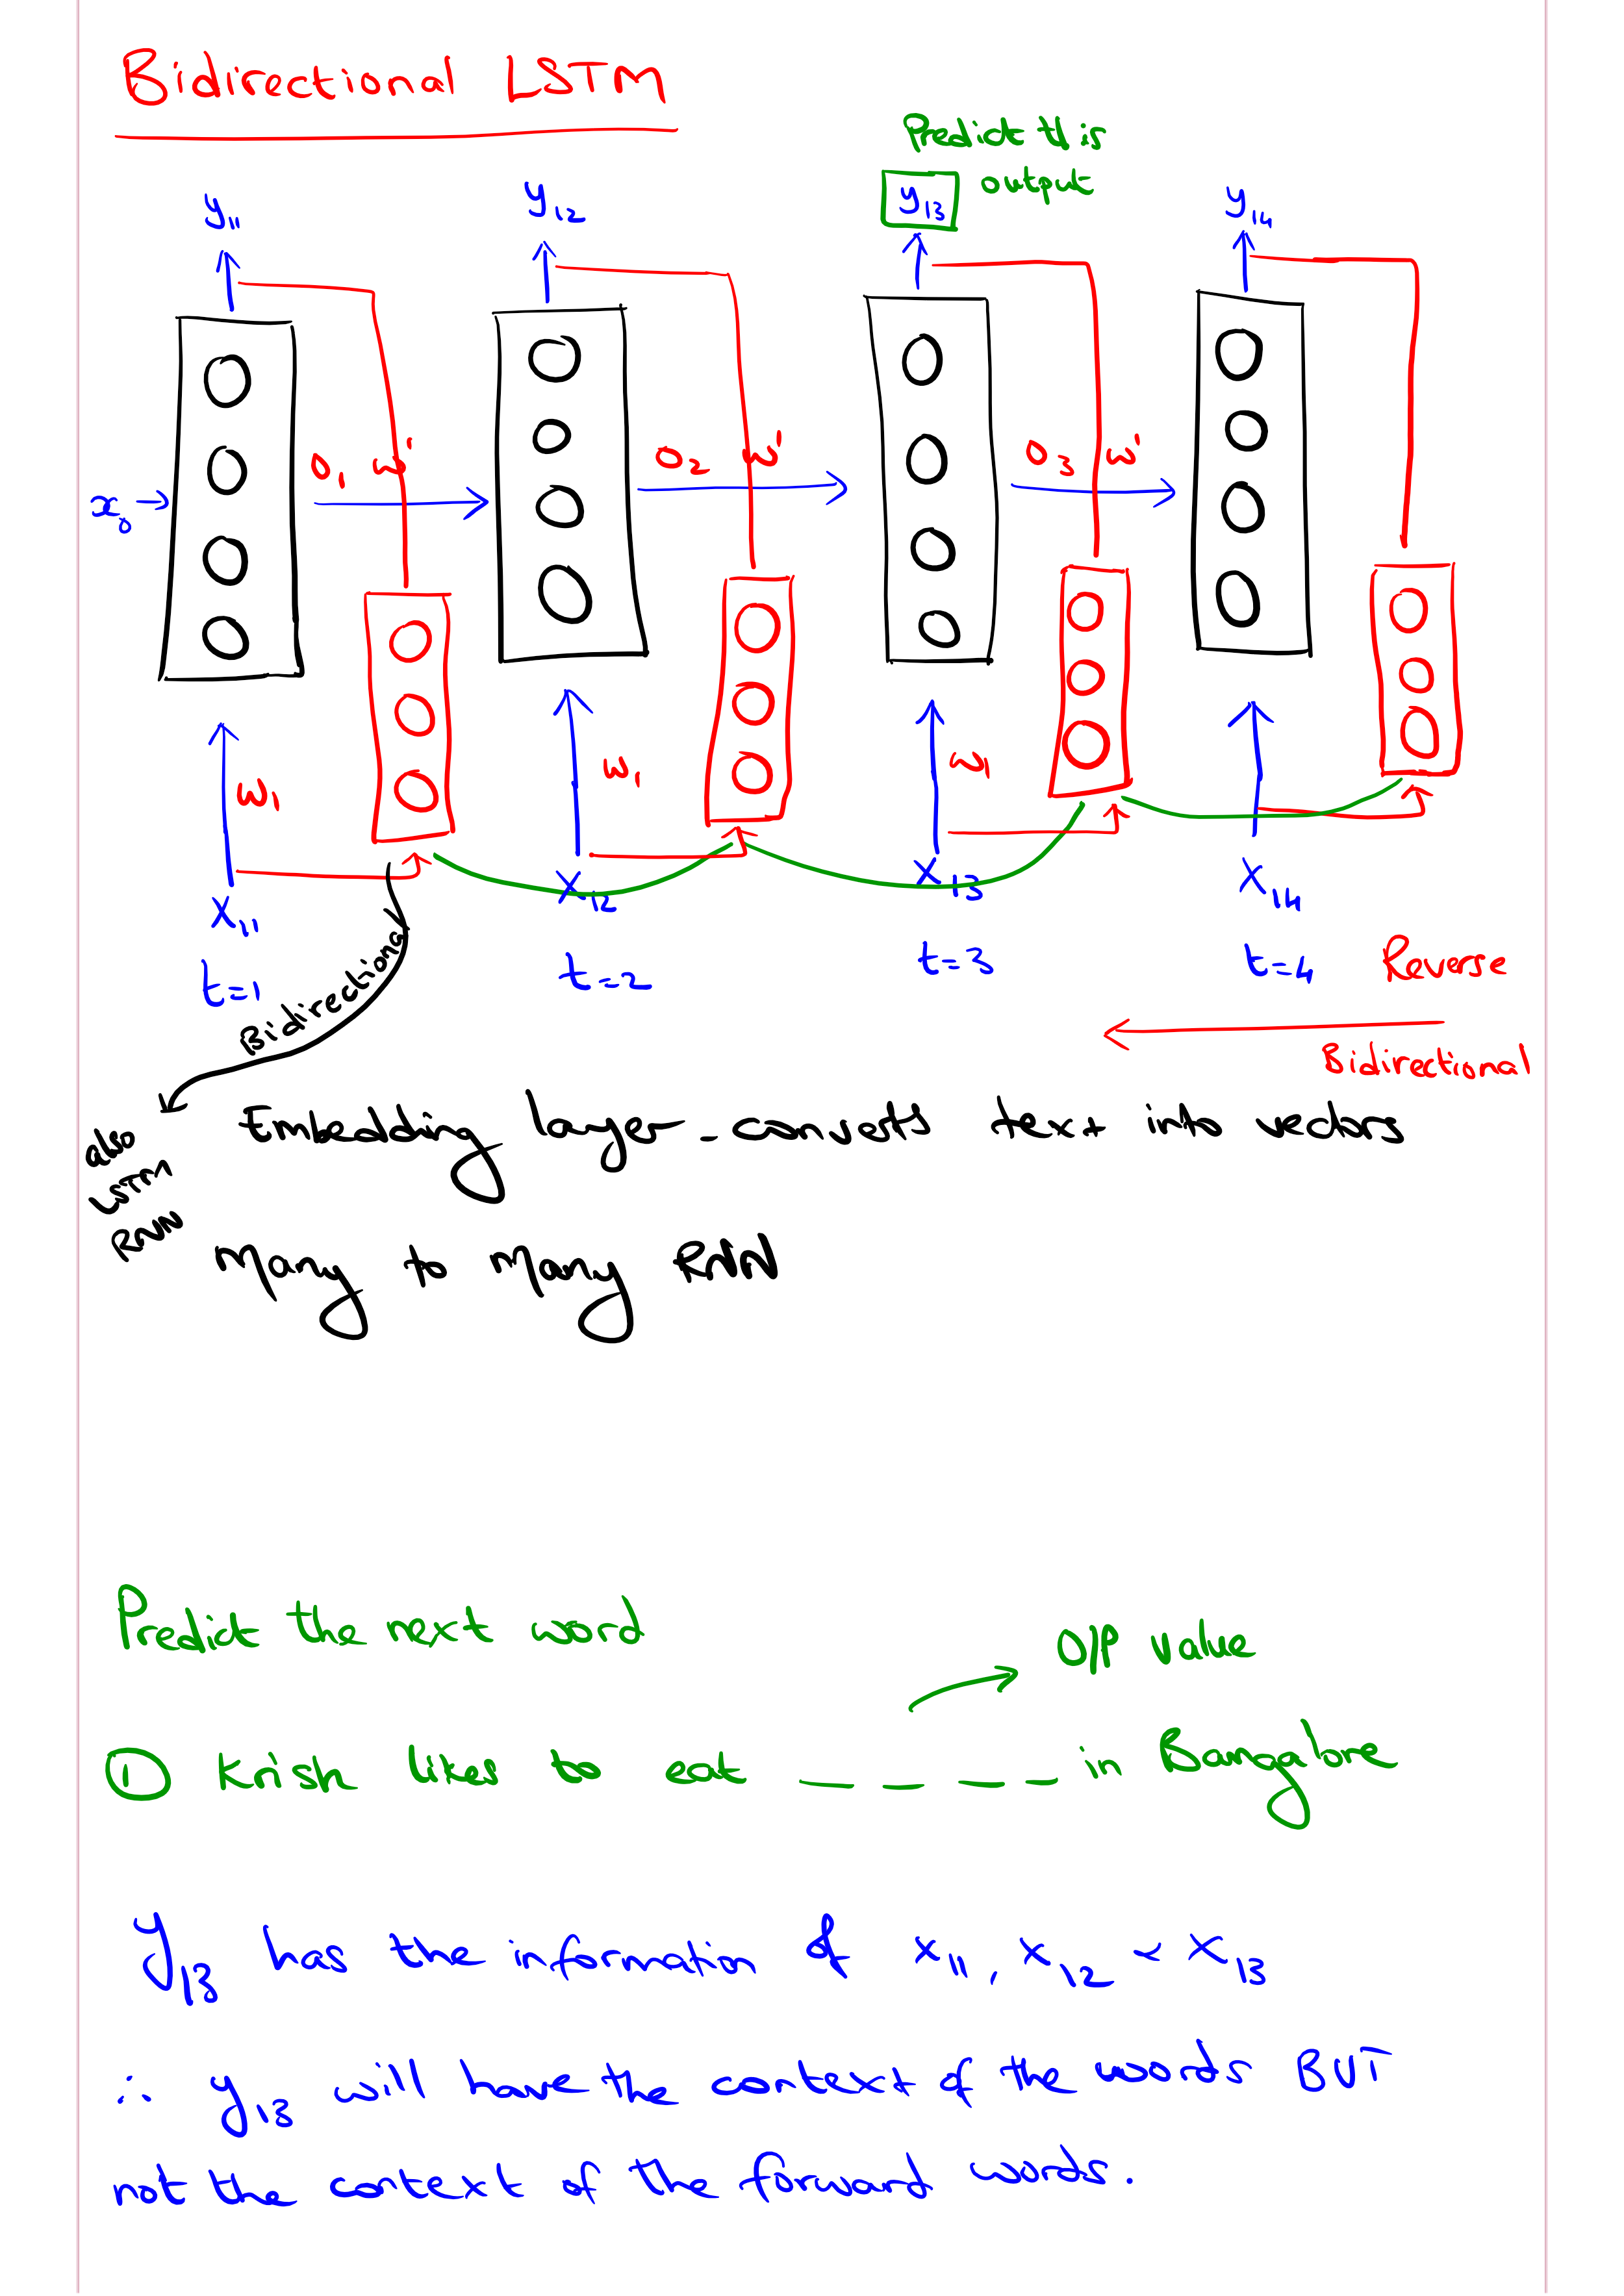 Bidirectional LSTM
Predict this
output
y11 y12 y13 y14
O1 w' O2 w' O3 w'
x0
w1 w1 w1
x11 x12 x13 x14
t=1 t=2 t=3 t=4 Reverse
Bidirectional
Bidirectional
also
LSTM
RNN
Embedding layer - converts text into vectors
Many to Many RNN
Predict the next word
O/P value
① Krish likes to eat _ _ _ _ in Bangalore
y13 has the information of x11, x12 - x13
∴ y13 will have the context of the words BUT
not the context of the forward words.